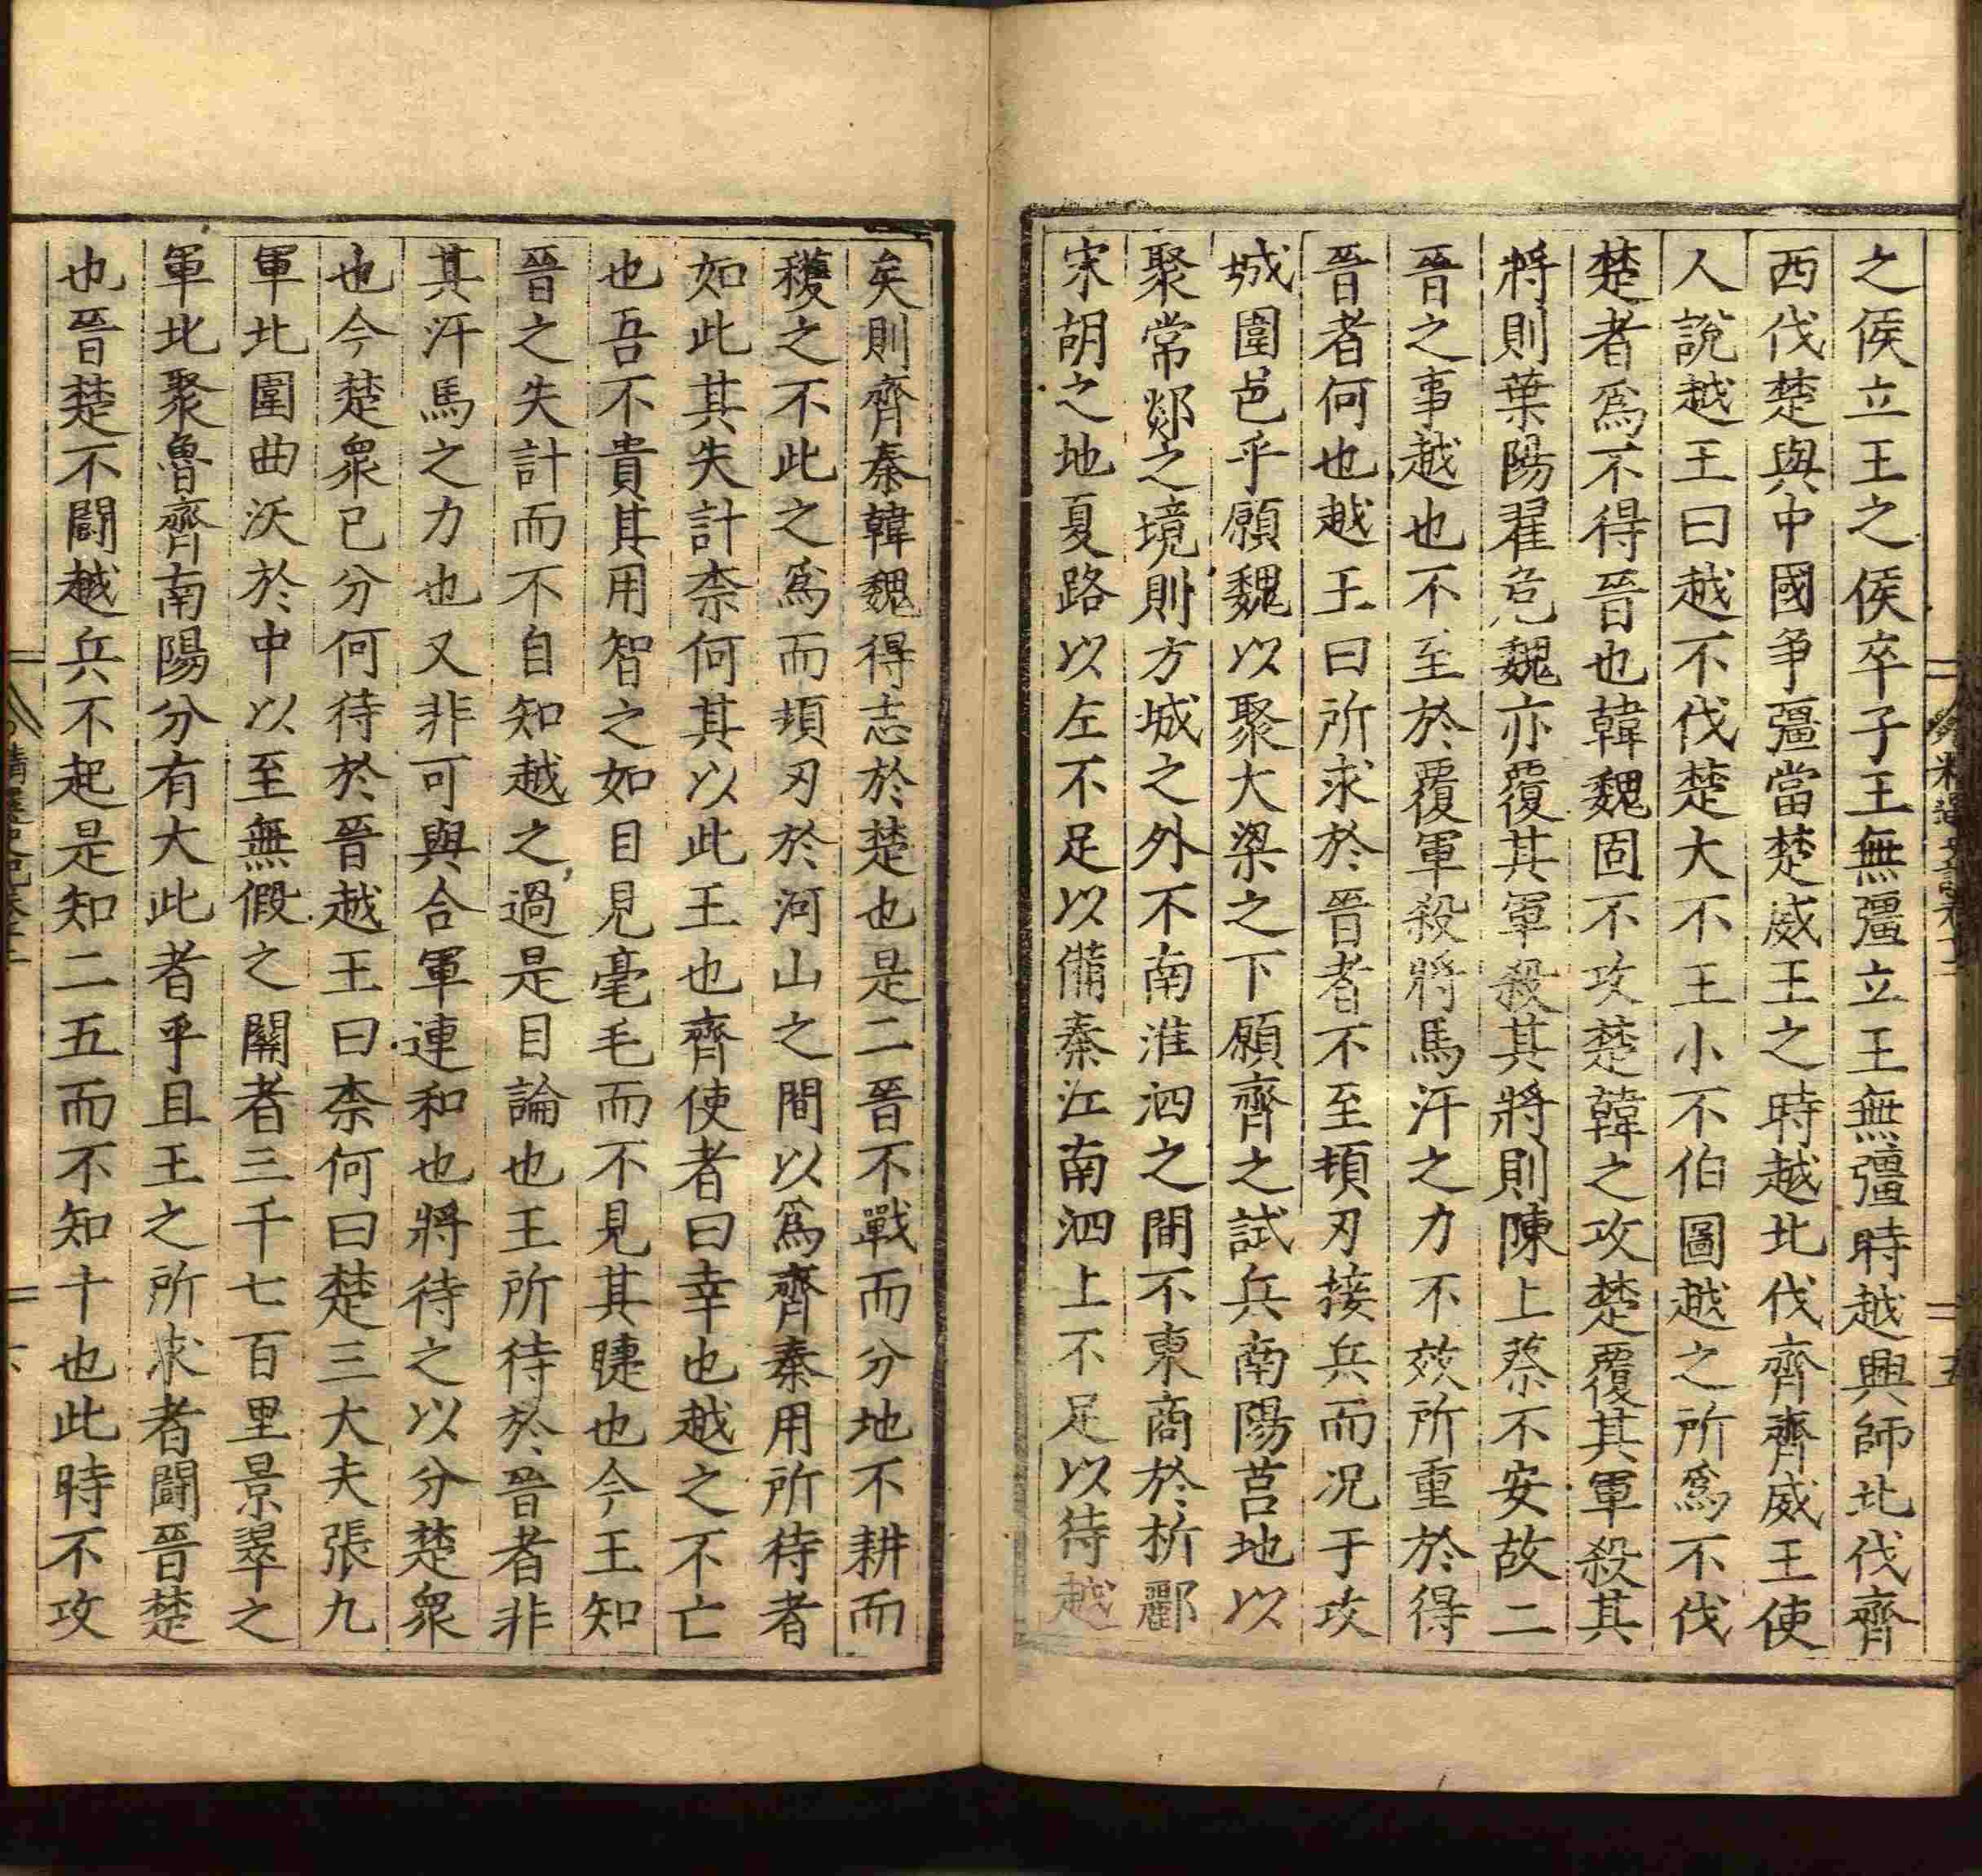 之侯立王之侯卒子王無彊立王無彊時越興師北伐齊
西伐楚與中國爭彊當楚威王之時越北伐齊齊威王使
人說越王曰越不伐楚大不王小不伯圖越之所爲不伐
楚者爲不得晉也韓魏固不攻楚韓之攻楚覆其軍殺其
將則葉陽翟危魏亦覆其軍殺其將則陳上蔡不安故二
晉之事越也不至於覆軍殺將馬汗之力不效所重於得
晉者何也越王曰所求於晉者不至頓刃接兵而况于攻
城圍邑乎願魏以聚大梁之下願齊之試兵南陽莒地以
聚常郯之境則方城之外不南淮泗之間不東商於析酈
宋胡之地夏路以左不足以備秦江南泗上不足以待越
矣則齊秦韓魏得志於楚也是二晉不戰而分地不耕而
穫之不此之爲而頓刃於河山之間以爲齊秦用所待者
如此其失計柰何其以此王也齊使者曰幸也越之不亡
也吾不貴其用智之如目見毫毛而不見其睫也今王知
晉之失計而不自知越之過是目論也王所待於晉者非
其汗馬之力也又非可與合軍連和也將待之以分楚衆
也今楚衆已分何待於晉越王曰柰何曰楚三大夫張九
軍北圍曲沃於中以至無假之關者三千七百里景翠之
軍北聚魯齊南陽分有大此者乎且王之所求者鬪晉楚
也晉楚不鬪越兵不起是知二五而不知十也此時不攻